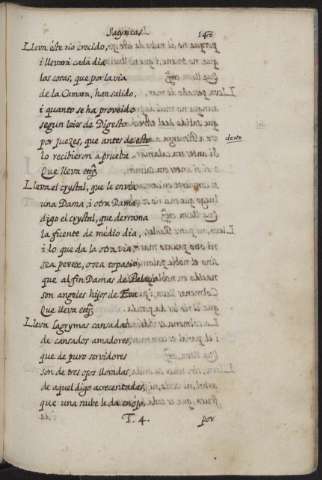 Satyricas. 148
Lleva este rio crecido,
i llevará cada dia
las cosas, que por la via
de la Camara, han salido,
i quanto se ha proveido
segun leies de Digesto
por juezes, que antes de esto
desto
lo recibieron a prueba
Que lleva etc̃.
Lleva el crystal, que le envia
una Dama, i otra Dama,
digo el crystal, que derrama
la fuente de medio dia,
i lo que da la otra via,
sea perexe, o sea topacio,
que al fin Damas de Palacio
son angeles hijos de Eva
Que lleva etc̃.
Lleva lagrymas cansadas
de cansados amadores,
que de puro servidores
son de tres ojos lloradas,
de aquel digo acrecentadas,
que una nube le da enojo,
T. 4. por